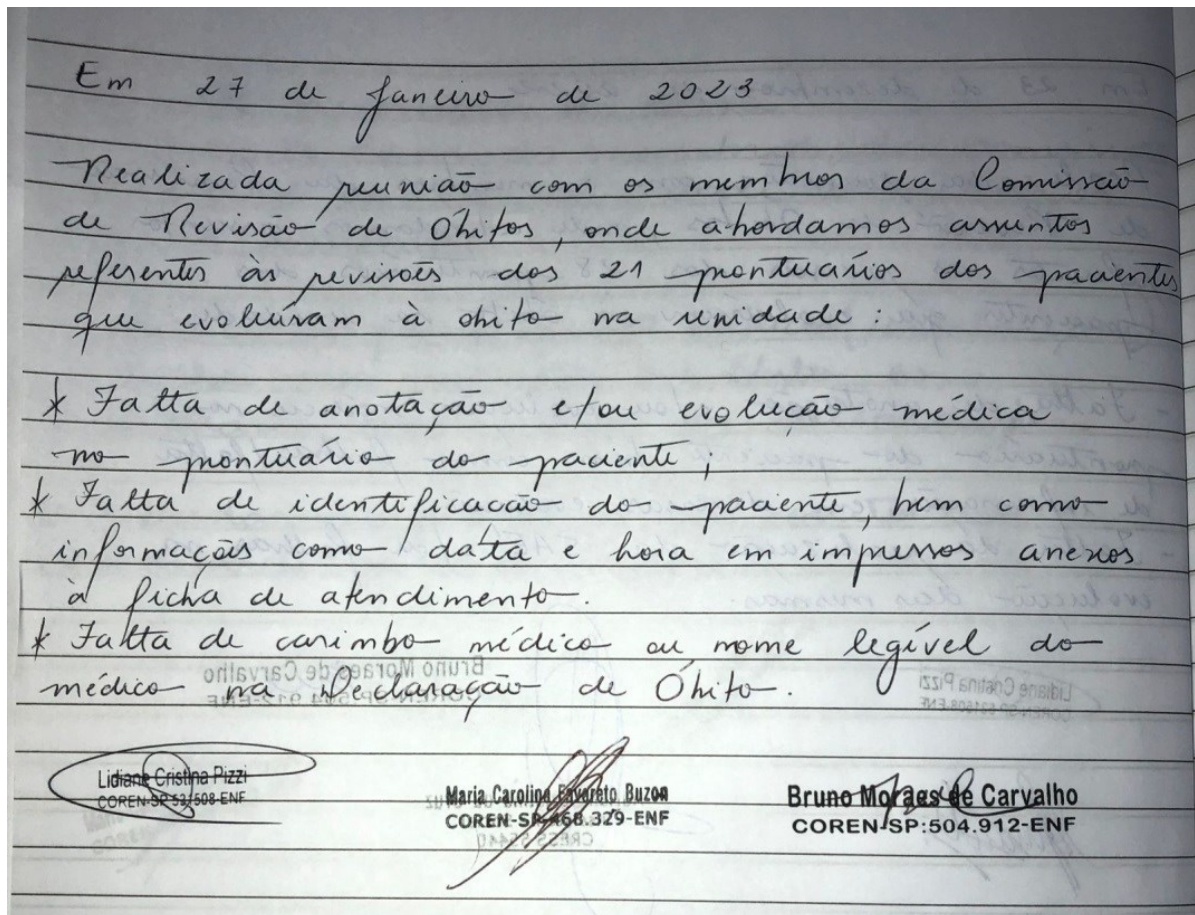 Em 27 de Janeiro de 2023
Realizada reunião com os membros da Comissão
de Revisão de Óbitos, onde abordamos assuntos
referentes às revisões dos 21 prontuários dos pacientes
que evoluíram à óbito na unidade:
* Falta de anotação e/ou evolução médica
no prontuário do paciente;
* Falta de identificação do paciente, bem como
informações como data e hora em impressos anexos
à ficha de atendimento.
* Falta de carimbo médico ou nome legível do
médico na Declaração de Óbito.
Lidiane Cristina Pizzi
COREN-SP 531508-ENF
Maria Carolina Favareto Buzon
COREN-SP 468.329-ENF
Bruno Moraes de Carvalho
COREN-SP:504.912-ENF